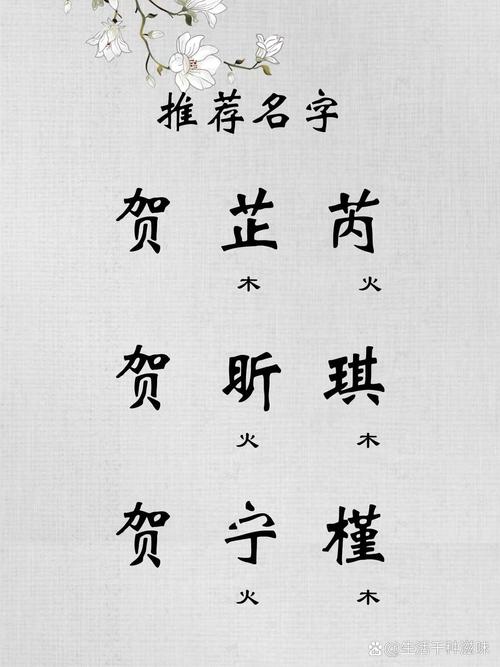 推荐名字
贺 芷 芮
木 火
贺 昕 琪
火 木
贺 宁 槿
火 木
生活千种滋味